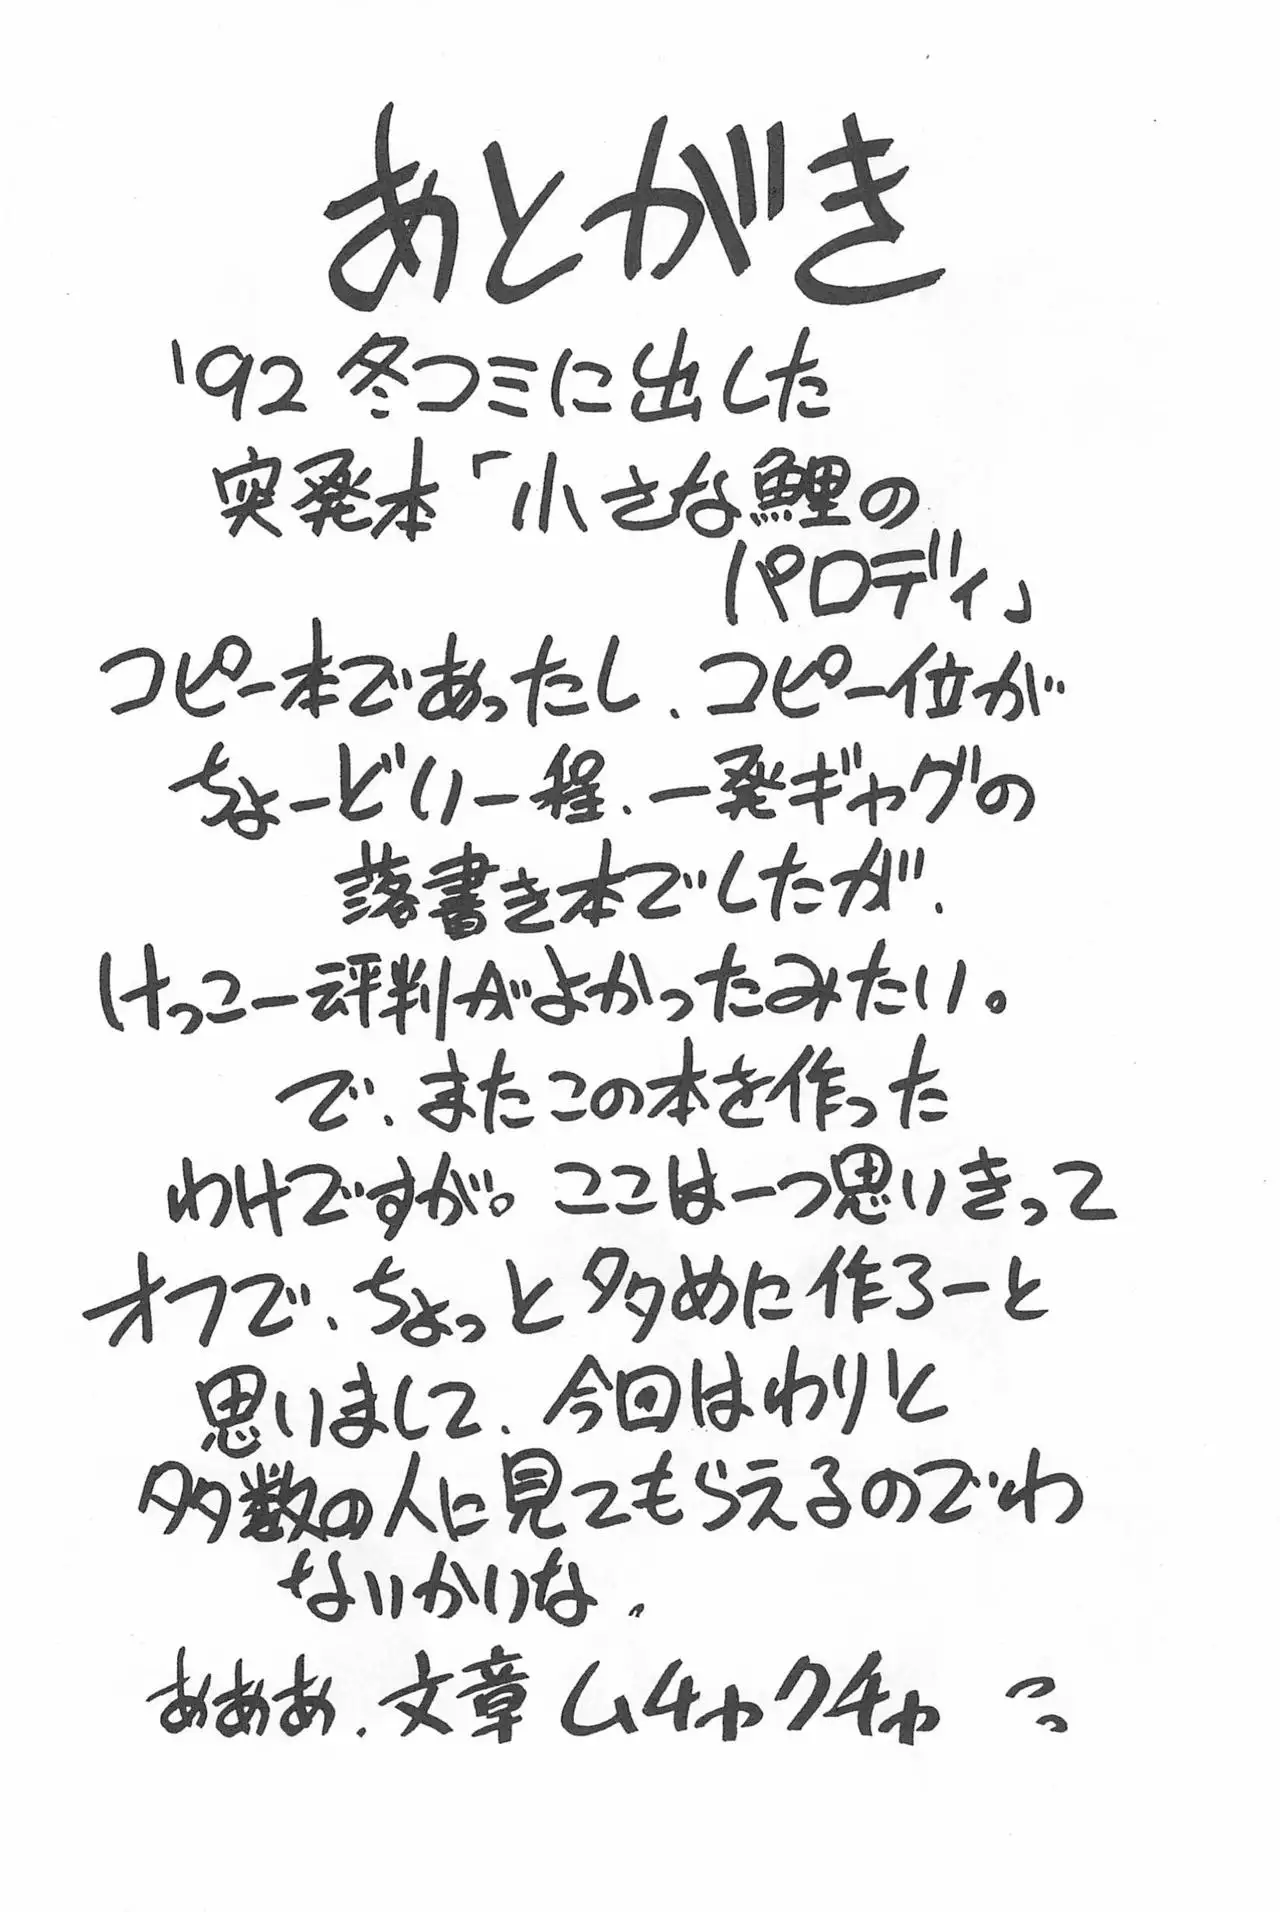 あとがき
'92 冬コミに出した
突発本「小さな鯉の
パロディ」
コピー本であったし、コピー位が
ちょーどいー程、一発ギャグの
落書き本でしたが、
けっこー評判がよかったみたい。
で、またこの本を作った
わけですが。ここは一つ思いきって
オフで、ちょっと多めに作ろーと
思いまして、今回はわりと
多数の人に見てもらえるのでわ
ないかいな〃
あああ、文章ムチャクチャ